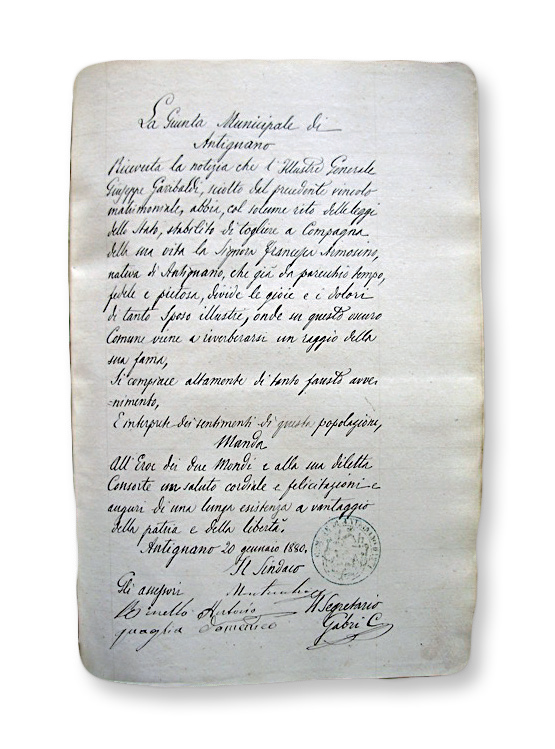 La Giunta Municipale di
Antignano
Ricevuta la notizia che l'Illustre Generale
Giuseppe Garibaldi, sciolto del precedente vincolo
matrimoniale, abbia, col solenne rito delle leggi
dello Stato, stabilito di togliere a Compagna
della sua vita la Signora Francesca Armosino,
nativa di Antignano, che già da parecchio tempo,
fedele e pietosa, divide le gioie e i dolori
di tanto Sposo illustre, onde su questo oscuro
Comune viene a riverberarsi un raggio della
sua fama,
Si compiace altamente di tanto fausto avve=
=nimento,
E interprete dei sentimenti di questa popolazione,
Manda
All'Eroe dei due Mondi e alla sua diletta
Consorte un saluto cordiale e felicitazioni e
auguri di una lunga esistenza a vantaggio
della patria e della libertà.
Antignano 20 gennaio 1880.
Il Sindaco
Gli assessori
Il Segretario
Binello
Gabri C.
Quaglia Domenico